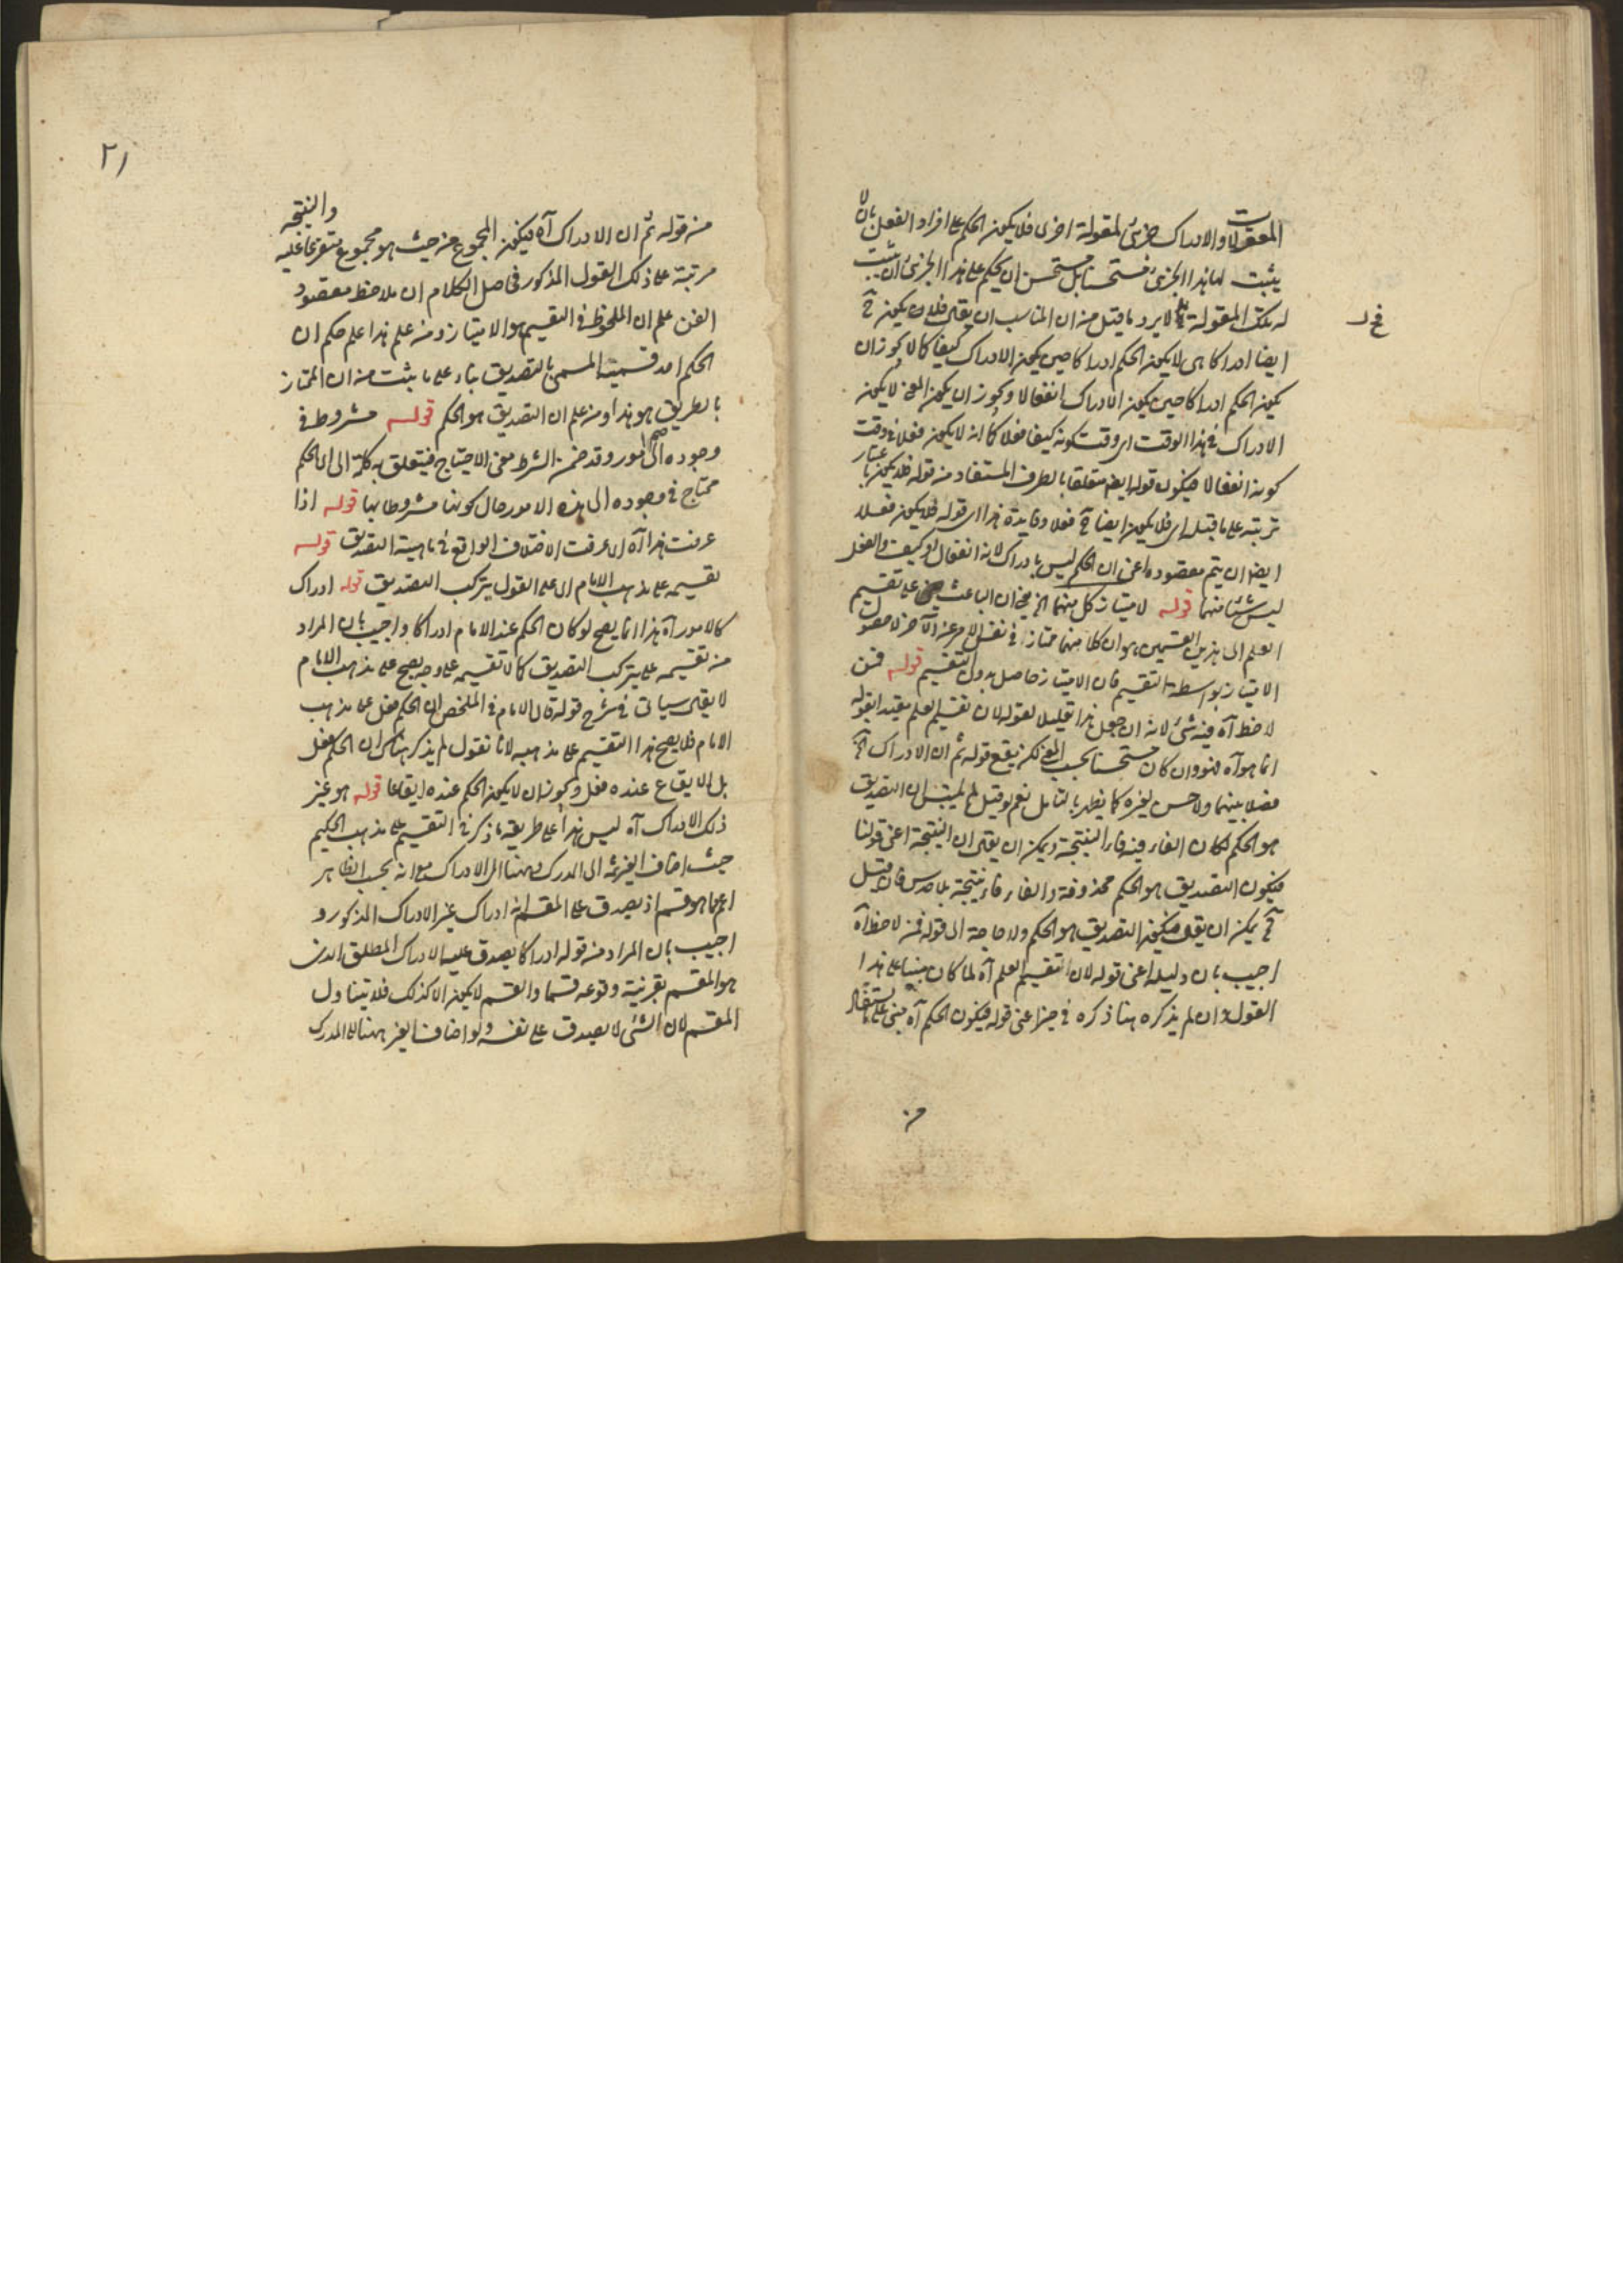 المقولات والادراك جزئى لمقولة اخرى فلا يكون الحكم على افراد الفعل بان لا
يثبت لها هذا الجزئى مستحسنا بل مستحسن ان يحكم على هذا الجزئى ان يثبت
له تلك المقولة لا يرد ما قيل من ان المناسب ان يقال فلان يكون ح
ايضا ادراكا اى لا يكون الحكم ادراكا حين يكون الادراك كيفا كما لا يجوز ان
يكون الحكم ادراكا حين يكون الادراك انفعالا ويجوز ان يكون المعنى لا يكون
الادراك فى هذا الوقت اى وقت كونه كيفا فعلا كما انه لا يكون فعلا فى وقت
كونه انفعالا فيكون قوله ايضا متعلقا بالطرف المستفاد من قوله فلا يكون باعتبار
ترتبه على ما قبله اى فلا يكون ايضا ح فعلا وفايدة هذا اى قوله فلا يكون فعلا
ايضا ان يتم مقصوده اعنى ان الحكم ليس بادراك لانه انفعال او كيف والفعل
ليس شئ منهما قوله لامتياز كل منهما الخ يعنى ان الباعث على تقسيم
العلم الى هذين القسمين هو ان كلا منهما ممتاز فى نفس الامر عن الآخر لا حصول
الامتياز بواسطة التقسيم فان الامتياز حاصل بدون التقسيم قوله فمن
لاحظ آه فيه شئ لانه ان جعل هذا تعليلا لقوله لان تقسيم العلم مقيدا بقوله
انما هو آه فهو وان كان مستحسنا بحسب المعنى لكن يقع قوله ثم ان الادراك الخ
فصلا بينهما ولا حسن لغيره كما يظهر بالتامل نعم لو قيل لم يتبين ان التصديق
هو الحكم لكان الفاء فيه فاء النتيجة ويمكن ان يقال ان النتيجة اعنى قولنا
فيكون التصديق هو الحكم محذوفة والفاء فاء نتيجة فان قيل
ح يمكن ان يقال فيكون التصديق هو الحكم ولا حاجة الى قوله فمن لاحظ آه
اجيب بان دليله اعنى قوله لان تقسيم العلم آه لما كان مبنيا على هذا
القول وان لم يذكره هنا ذكره فى حيز اعنى قوله فيكون الحكم آه مبنى على ما يستفاد
من
فح لـ
٢١
من قوله ثم ان الادراك آه فيكون المجموع من حيث هو مجموع متفرعا عليه والنتيجة
مرتبة على ذلك القول المذكور فحاصل الكلام ان ملاحظ مقصود
الفن علم ان الملحوظ فى التقسيم هو الامتياز ومن علم هذا علم حكم ان
الحكم احد قسميه المسمى بالتصديق بناء على ما يثبت من ان الممتاز
بالطريق هو هذا ومن علم ان التصديق هو الحكم قوله مشروط فى
وجوده الى امور وقد ضمن الشرط معنى الاحتياج فيتعلق به كلمة الى اى الحكم
محتاج فى وجوده الى هذه الامور حال كونها مشروطا بها قوله اذا
عرفت هذا آه اى عرفت الاختلاف الواقع فى ماهية التصديق قوله
تقسيمه على مذهب الامام اى على القول بتركب التصديق قوله ادراك
كالامور آه هذا انما يصح لو كان الحكم عند الامام ادراكا واجيب بان المراد
من تقسيمه على تركب التصديق كان تقسيمه على وجه يصح على مذهب الامام
لا يقال سياتى فى شرح قوله قال الامام فى الملخص ان الحكم فعل على مذهب
الامام فلا يصح هذا التقسيم على مذهبه لانا نقول لم يذكر هناك ان الحكم فعل
بل الايقاع عنده فعل ويجوز ان لا يكون الحكم عنده ايقاعا قوله هو غير
ذلك الادراك آه ليس هذا على طريقة ما ذكر فى التقسيم على مذهب الحكيم
حيث اضاف الغيرية الى المدرك وههنا الى الادراك مع انه بحسب الظاهر
اعم مما هو قسم اذ يصدق على المقسم انه ادراك غير الادراك المذكور و
اجيب بان المراد من قوله ادراكا يصدق عليه الادراك المطلق الذى
هو المقسم بقرينة وقوعه قسما والقسم لا يكون الا كذلك فلا يتناول
المقسم لان الشئ لا يصدق على نفسه ولو اضاف الغير ههنا الى المدرك